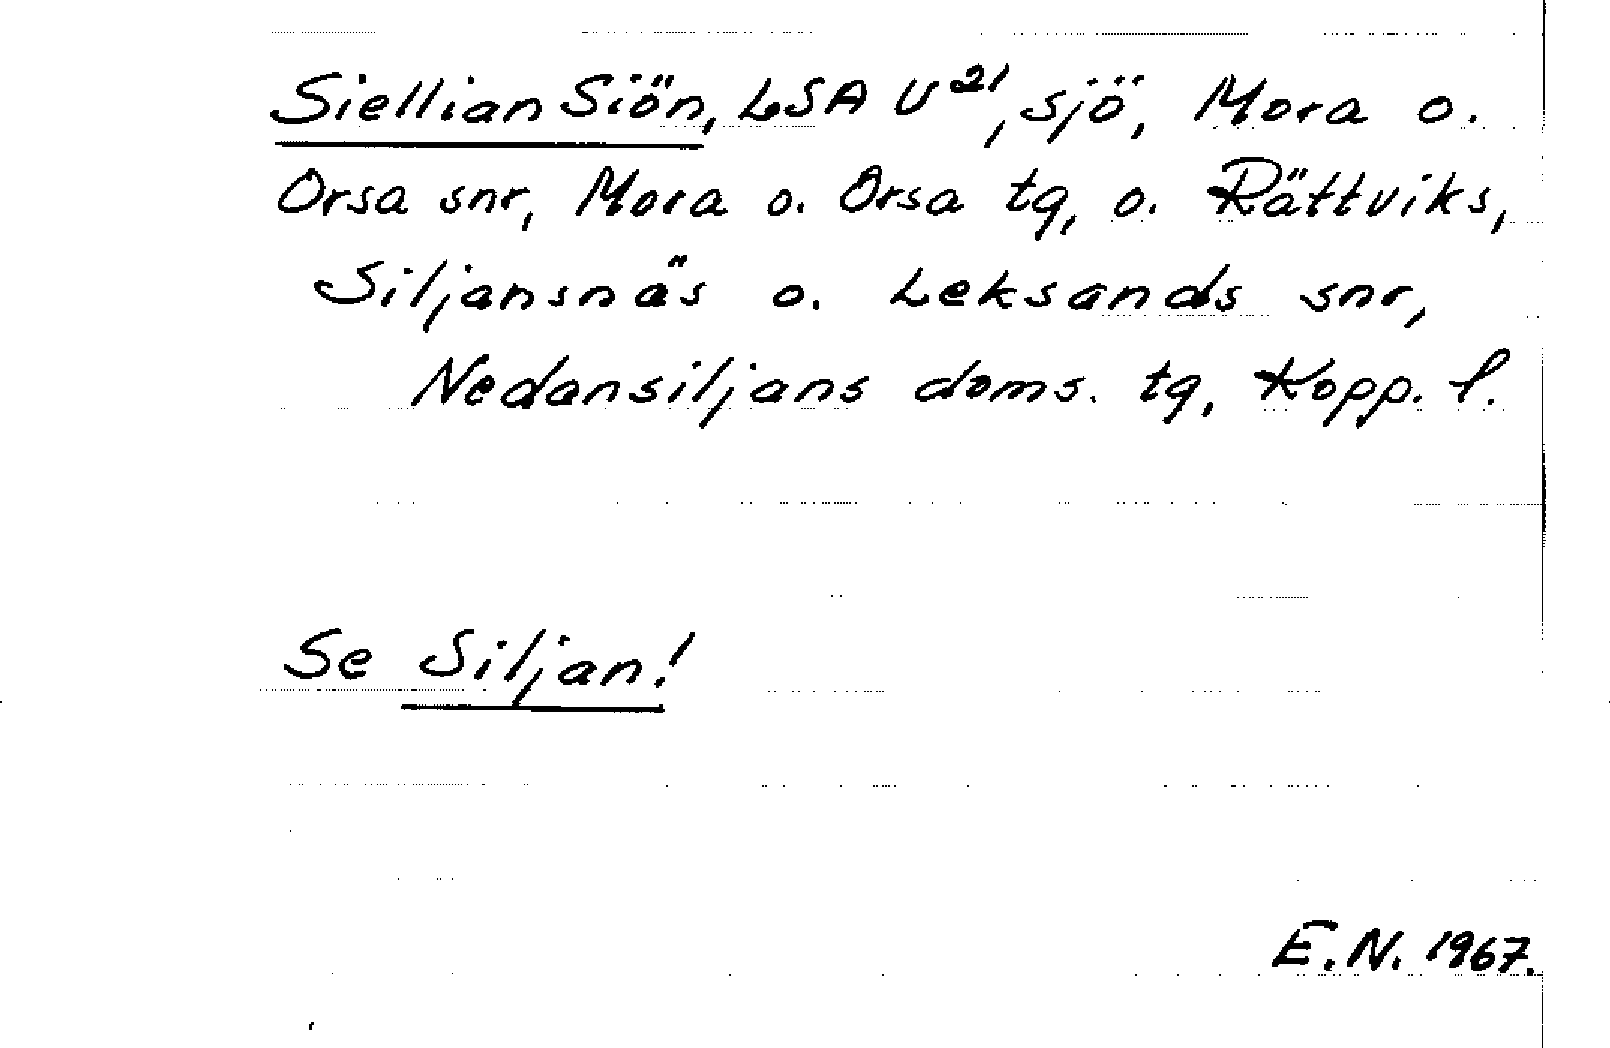 Siellian Siön, LSA U²¹, sjö, Mora o.
Orsa snr, Mora o. Orsa tg, o. Rättviks,
Siljansnäs o. Leksands snr,
Nedansiljans doms. tg, Kopp. l.
Se Siljan!
E.N. 1967.